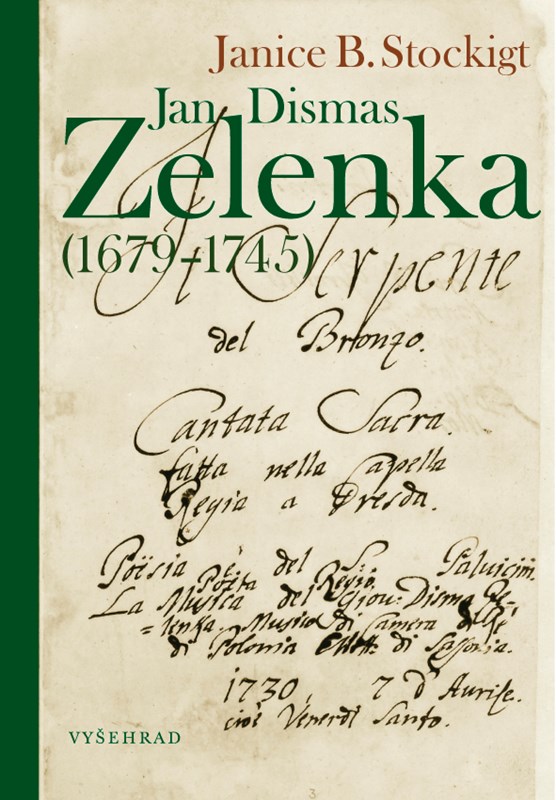 Janice B. Stockigt
Jan Dismas
Zelenka
(1679–1745)
Il Serpente
del Bronzo.
Cantata Sacra.
fatta nella Capella
Regia a Dresda.
Poësia è del S.
Poëta Regio.
La Musica del Giov: Disma Ze-
=lenka Musico di Camera
di Polonia di Sassonia.
1730, 7 d'
cioè Venerdi Santo.
VYŠEHRAD
3